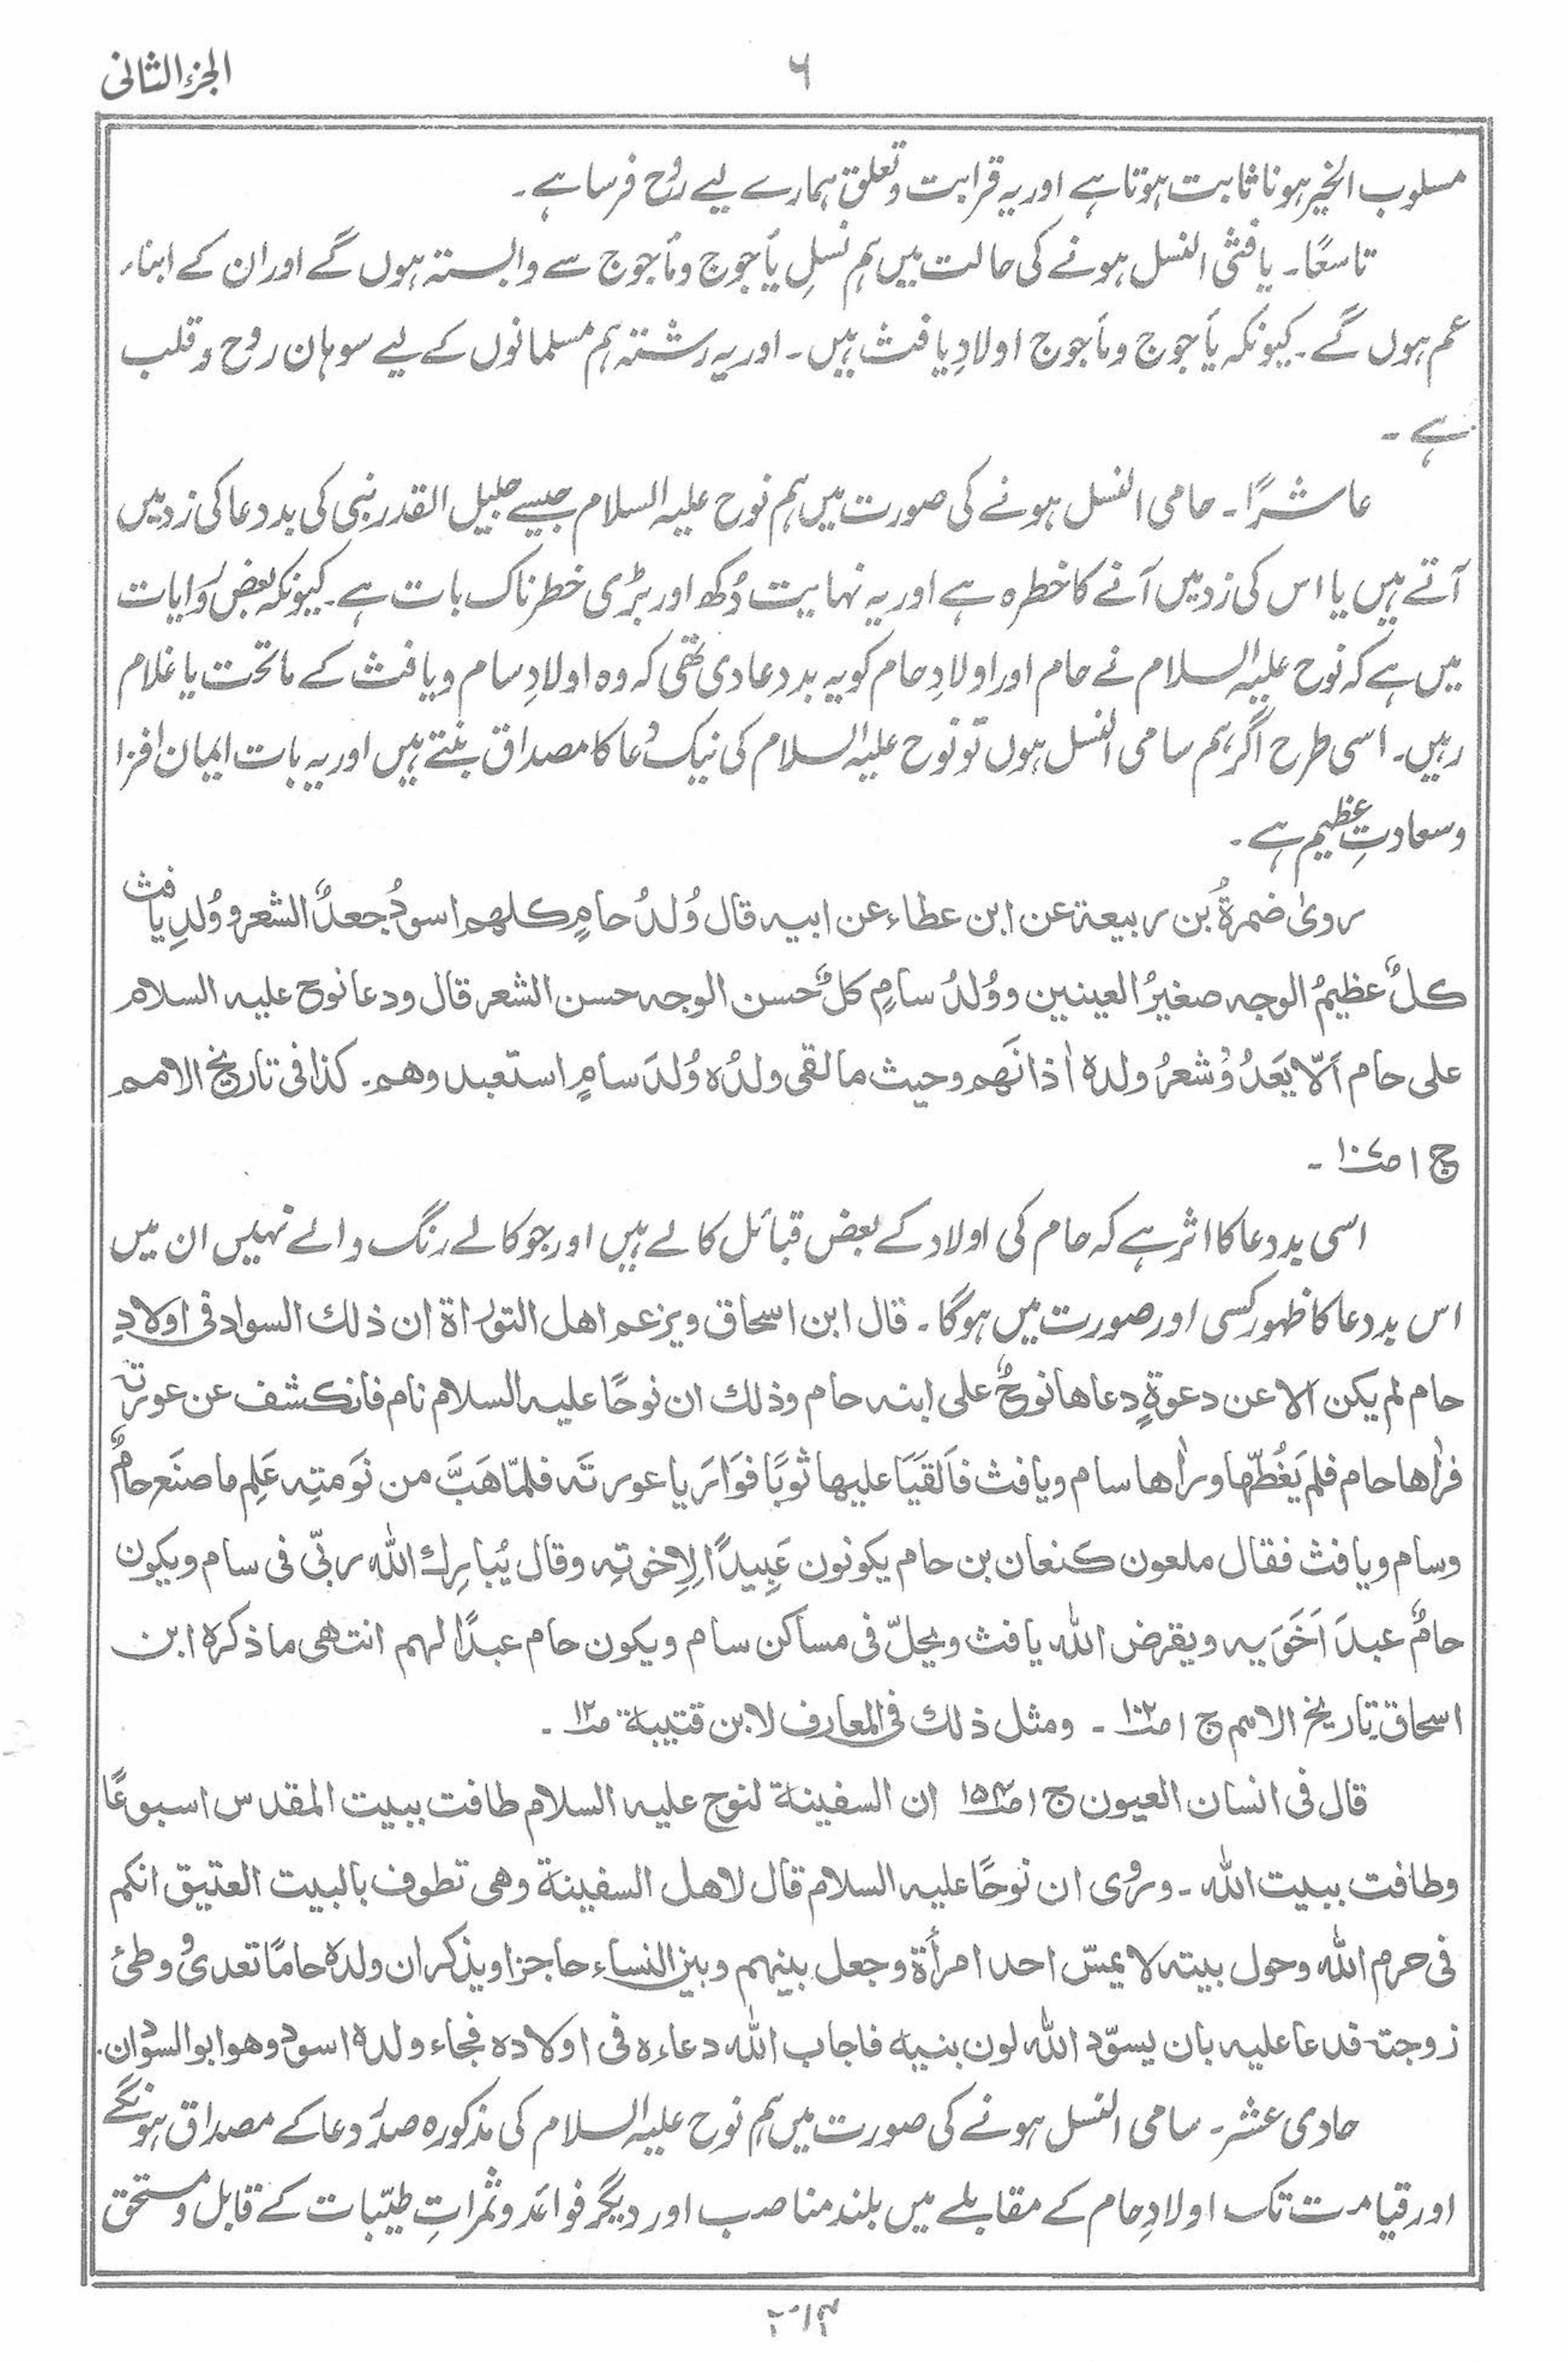 الجزء الثانی
۶
مسلوب الخیر ہونا ثابت ہوتا ہے اور یہ قرابت و تعلق ہمارے لیے رُوح فرسا ہے۔
تاسعًا۔ یافثی النسل ہونے کی حالت میں ہم نسلِ یأجوج و مأجوج سے وابستہ ہوں گے اور ان کے ابناء
عم ہوں گے۔ کیونکہ یأجوج و مأجوج اولادِ یافث ہیں۔ اور یہ رشتہ ہم مسلمانوں کے لیے سوہان روح و قلب
ہے۔
عاشرًا۔ حامی النسل ہونے کی صورت میں ہم نوح علیہ السلام جیسے جلیل القدر نبی کی بددعا کی زد میں
آتے ہیں یا اس کی زد میں آنے کا خطرہ ہے اور یہ نہایت دُکھ اور بڑی خطرناک بات ہے۔ کیونکہ بعض رُوایات
میں ہے کہ نوح علیہ السلام نے حام اور اولادِ حام کو یہ بددعا دی تھی کہ وہ اولادِ سام و یافث کے ماتحت یا غلام
رہیں۔ اسی طرح اگر ہم سامی النسل ہوں تو نوح علیہ السلام کی نیک دُعا کا مصداق بنتے ہیں اور یہ بات ایمان افزا
و سعادتِ عظیم ہے۔
روىٰ ضمرةُ بن ربیعة عن ابن عطاء عن ابیه قال وُلدُ حامٍ کلهم اسودُ جعدُ الشعر و وُلدِ یافث
کلٌ عظیمُ الوجه صغیرُ العینین و وُلدُ سامٍ کلٌ حسن الوجه حسن الشعر قال ودعا نوح علیه السلام
على حام اَلّا یَعْدُوَ شعرُ ولدهٖ اٰذانَهم وحیث ما لقی ولدُه وُلدَ سامٍ استعبدوهم۔ کذا فی تاریخ الامم
ج ۱ ص۱۰۴ ۔
اسی بددعا کا اثر ہے کہ حام کی اولاد کے بعض قبائل کالے ہیں اور جو کالے رنگ والے نہیں ان میں
اس بددعا کا ظہور کسی اور صورت میں ہوگا۔ قال ابن اسحاق ویزعم اهل التوراة ان ذلك السواد فی اولادِ
حام لم یکن الا عن دعوةٍ دعاها نوحٌ على ابنه حام وذلك ان نوحًا علیه السلام نام فانکشف عن عورته
فراٰها حام فلم یَغُطّها وراٰها سام ویافث فَاَلقَیَا علیها ثوبًا فوَارَیا عورتَه فلمّا هَبَّ من نَومتِه عَلِم ما صنَع حامٌ
وسام ویافث فقال ملعون کنعان بن حام یکونون عَبِیدًا لِاِخوتِه وقال یُبارِك الله ربّی فی سام ویکون
حامٌ عبدَ اَخَوَیه ویقرض الله یافث ویحلّ فی مساکن سام ویکون حام عبدًا لهم انتهى ما ذکره ابن
اسحاق۔ تاریخ الامم ج ۱ ص۱۰۲ ۔ ومثل ذلك فی المعارف لابن قتیبة ص۱۲ ۔
قال فی انسان العیون ج ۱ ص۱۵۳ ان السفینة لنوح علیه السلام طافت ببیت المقدس اسبوعًا
وطافت ببیت الله۔ ورُوی ان نوحًا علیه السلام قال لاهل السفینة وهی تطوف بالبیت العتیق انکم
فی حرم الله وحول بیته لا یمسّ احد امرأة وجعل بینهم وبین النساء حاجزا ویذکر ان ولدهٗ حامًا تعدی ووطئ
زوجتہ فدعا علیه بان یسوّد الله لون بنیه فاجاب الله دعاءه فی اولاده فجاء ولده اسود وهو ابو السودان۔
حادی عشر۔ سامی النسل ہونے کی صورت میں ہم نوح علیہ السلام کی مذکورہ صدر دعا کے مصداق ہونگے
اور قیامت تک اولادِ حام کے مقابلے میں بلند مناصب اور دیگر فوائد و ثمراتِ طیّبات کے قابل و مستحق